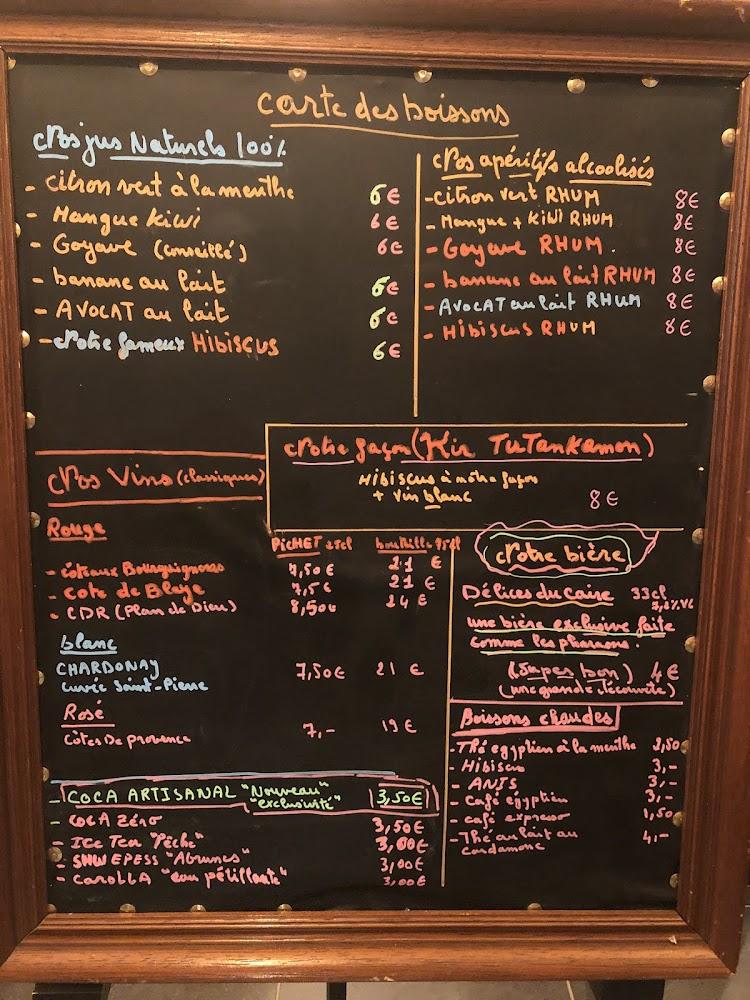 Carte des boissons
Nos jus Naturels 100%
- citron vert à la menthe 6€
- Mangue Kiwi 6€
- Goyave (conseillé) 6€
- banane au lait 6€
- AVOCAT au lait 6€
- Notre fameux HIBISCUS 6€
Nos apéritifs alcoolisés
- citron vert RHUM 8€
- Mangue + KIWI RHUM 8€
- Goyave RHUM. 8€
- banane au lait RHUM 8€
- AVOCAT au lait RHUM 8€
- HIBISCUS RHUM 8€
Notre façon (Kir TuTankamon)
HIBISCUS à notre façon
+ vin blanc 8€
Nos Vins (classiques)
Rouge PICHET 25cl bouteille 75cl
- côteaux Bourguignons 7,50€ 21 €
- cote de Blaye 7,5€ 21 €
- CDR (Plan de Dieu) 8,50€ 24 €
blanc
CHARDONAY 7,50€ 21 €
cuvée Saint-Pierre
Rosé
côtes De provence 7,- 19€
- COCA ARTISANAL "Nouveau" "exclusivité" 3,50€
- COCA Zéro 3,50€
- ICE Tea "Pêche" 3,00€
- SHWEPESS "Agrumes" 3,00€
- CAROLLA "eau pétillante" 3,00€
Notre bière
Délices du Caire 33cl
une bière exclusive faite
comme les pharaons.
(Super bon) 4€
(une grande découverte)
Boissons chaudes
- Thé egyptien à la menthe 3,50
- Hibiscus 3,-
- ANIS 3,-
- café égyptien 3,-
- café expresso 1,50
- Thé au lait au 4,-
cardamone